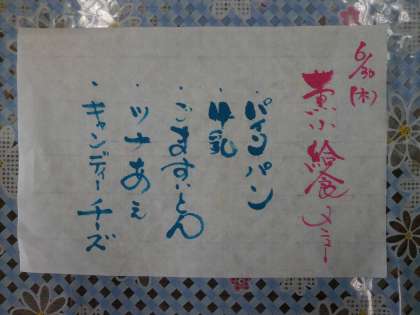 6/30(木)
薫小給食メニュー
・パインパン
・牛乳
・ごますいとん
・ツナあえ
・キャンディーチーズ